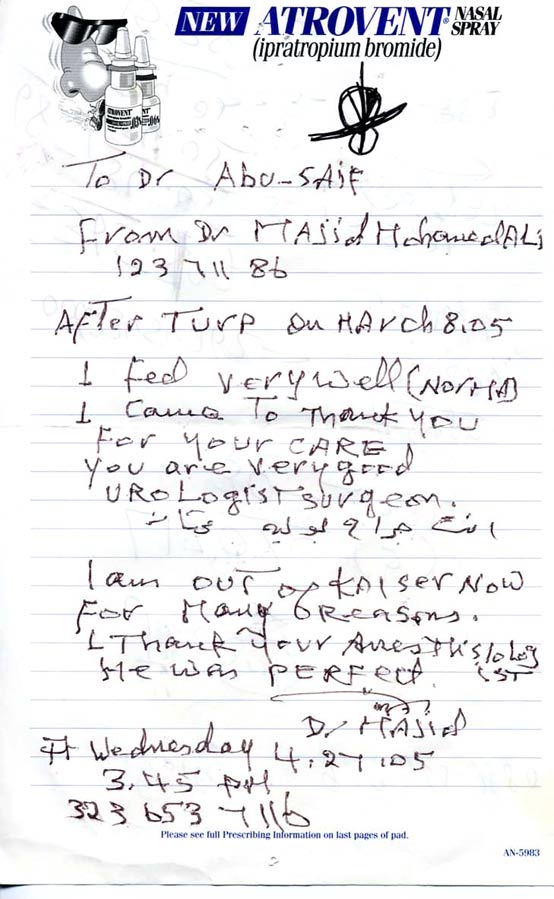 NEW ATROVENT® NASAL SPRAY
(ipratropium bromide)
ATROVENT
To Dr Abu-SAif
From Dr MAjid Mohamed ALi
123 7 11 86
AfTer TURP on MARch 8.05
I feel very well (NorMAl)
I Came To Thank you
For your CARE,
you are very good
UROLogist surgeon.
انت جراح بولية
I am out of KAiser Now
For Many Reasons.
I Thank your Anesthisiolog
ist
He was PERFect.
Dr MAjid
Wednesday 4.27.05
3.45 pM
323 653 7116
Please see full Prescribing Information on last pages of pad.
AN-5983